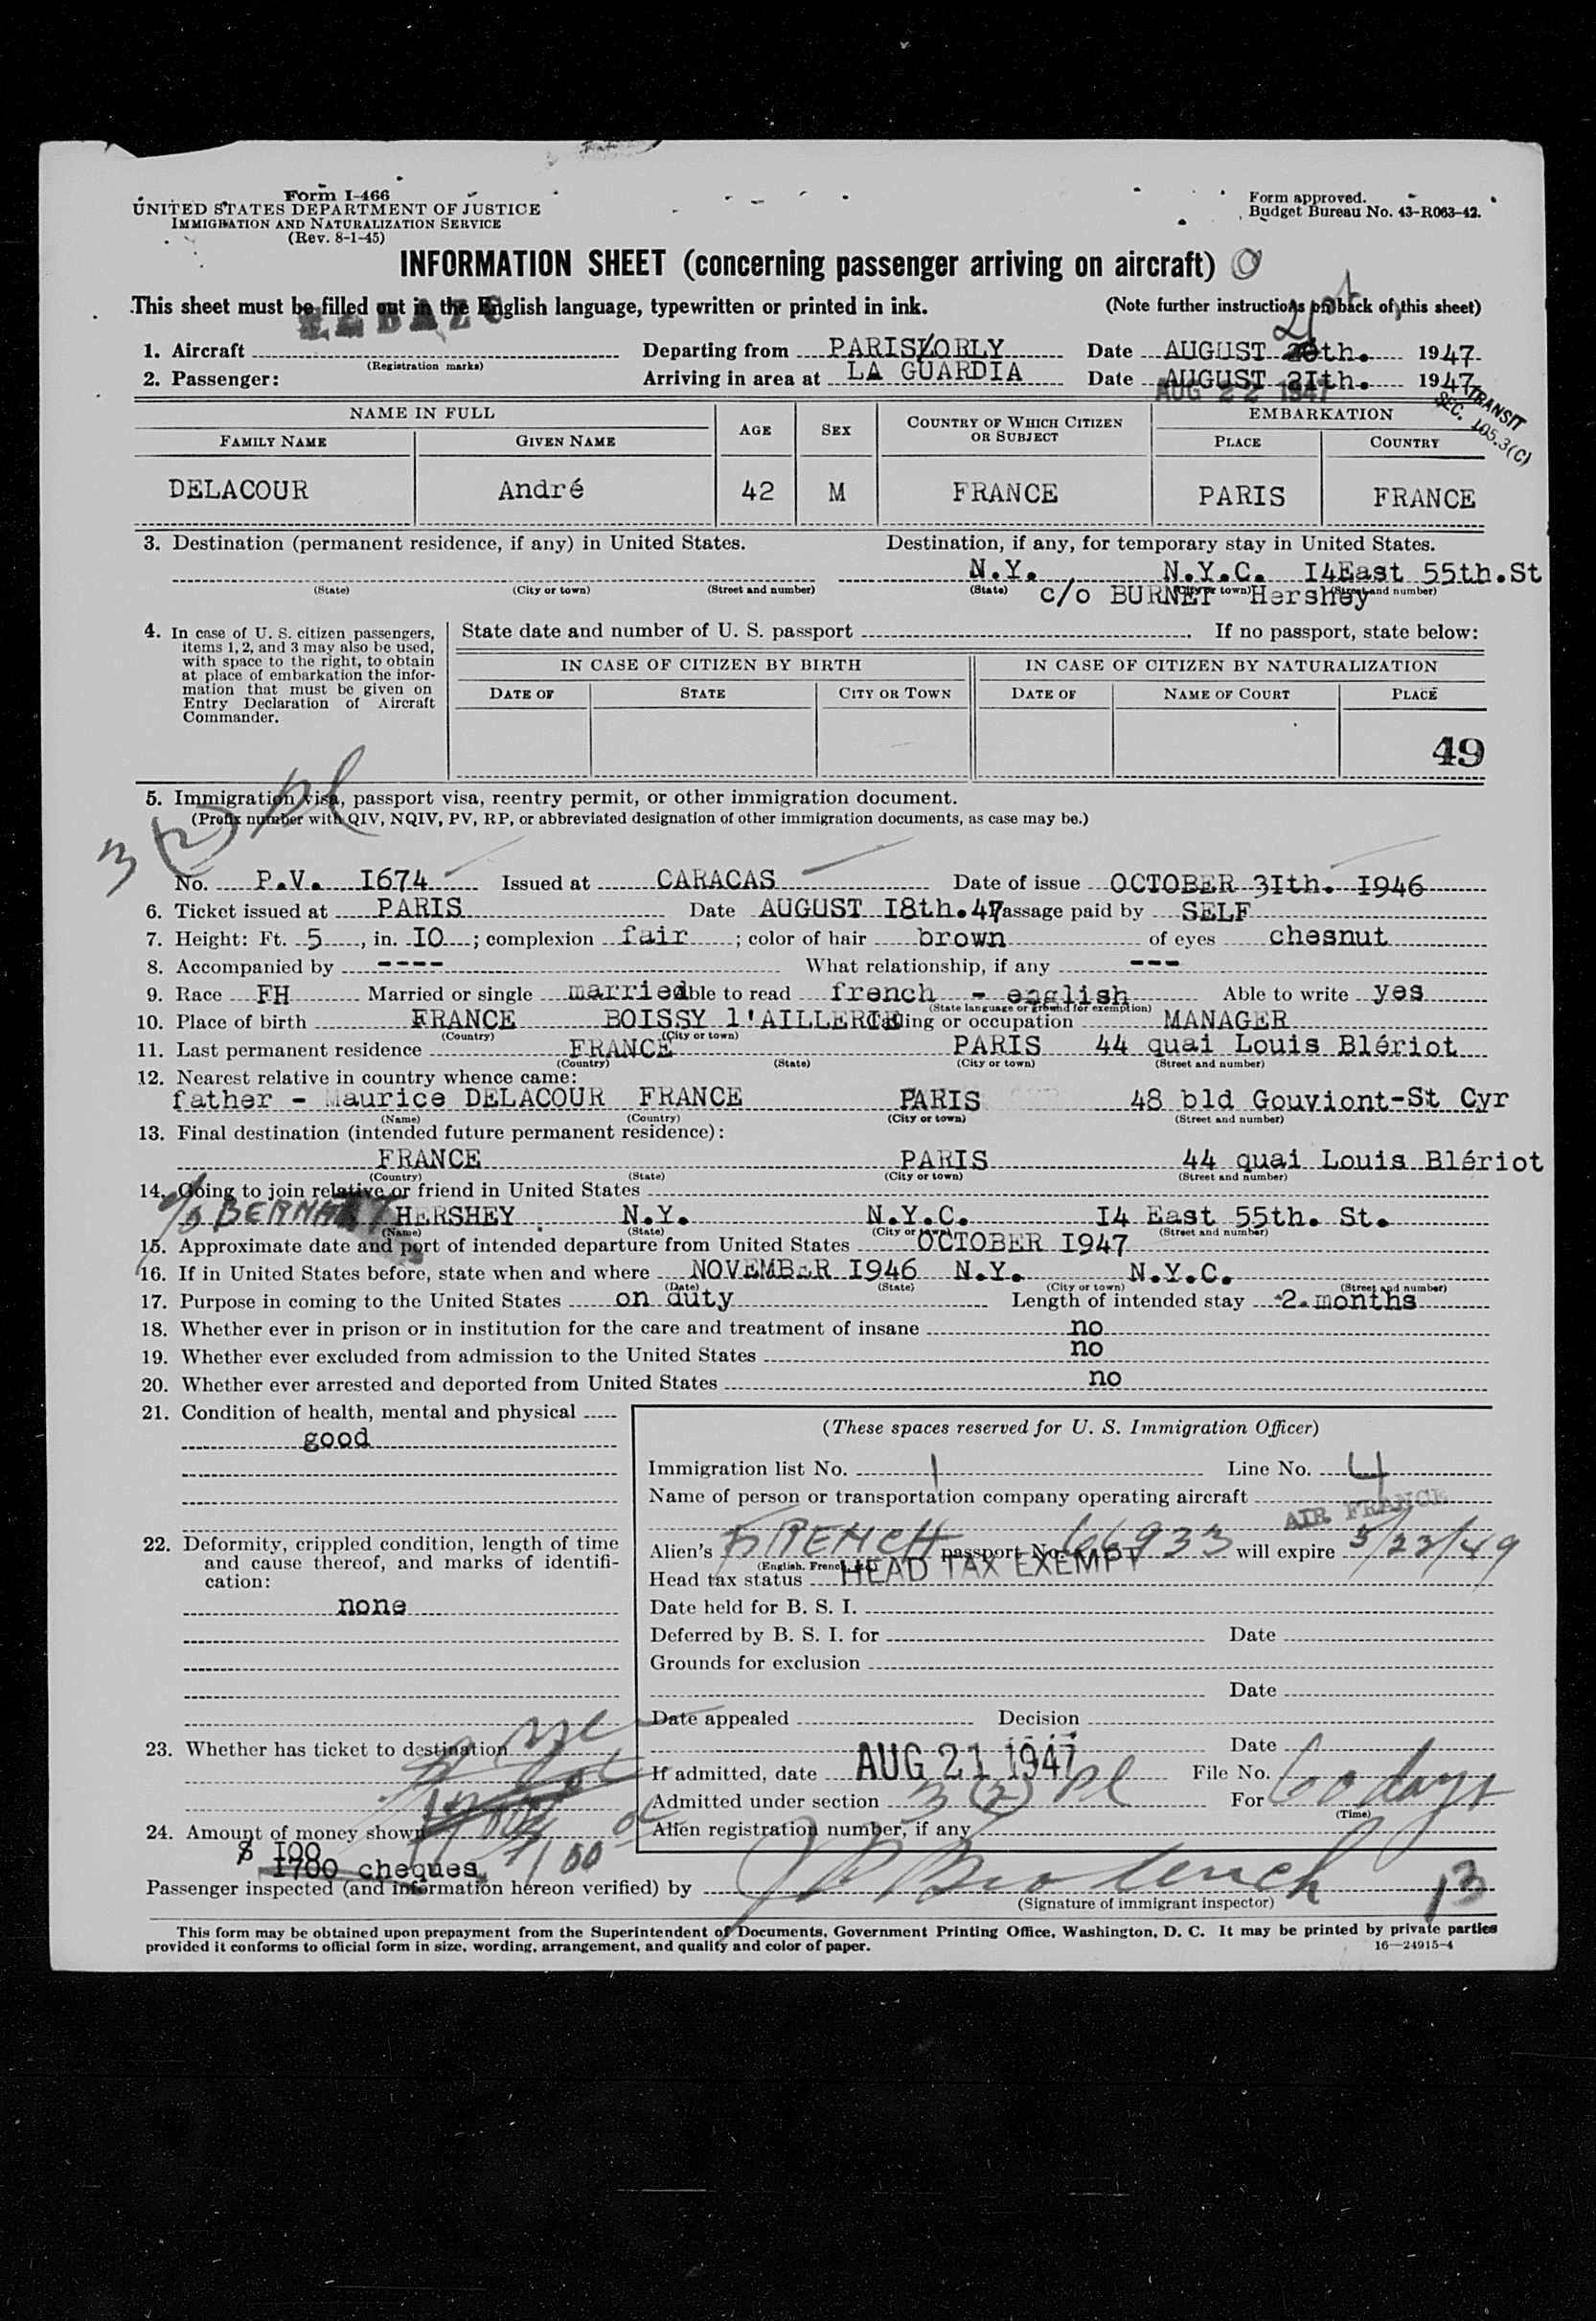 Form I-466
UNITED STATES DEPARTMENT OF JUSTICE
IMMIGRATION AND NATURALIZATION SERVICE
(Rev. 8-1-45)
Form approved.
Budget Bureau No. 43-R063-42.
INFORMATION SHEET (concerning passenger arriving on aircraft)
This sheet must be filled out in the English language, typewritten or printed in ink. (Note further instructions on back of this sheet)
1. Aircraft Departing from PARIS/ORLY Date AUGUST th. 1947
(Registration marks)
2. Passenger: Arriving in area at LA GUARDIA Date AUGUST 2Ith. 1947
AUG 22 1947
TRANSIT
SEC. 105.3(C)
NAME IN FULL AGE SEX COUNTRY OF WHICH CITIZEN OR SUBJECT EMBARKATION
FAMILY NAME GIVEN NAME PLACE COUNTRY
DELACOUR André 42 M FRANCE PARIS FRANCE
3. Destination (permanent residence, if any) in United States. Destination, if any, for temporary stay in United States.
N.Y. N.Y.C. I4East 55th.St
(State) (City or town) (Street and number) (State) (City or town) (Street and number)
c/o BURNET Hershey
4. In case of U. S. citizen passengers, items 1, 2, and 3 may also be used, with space to the right, to obtain at place of embarkation the information that must be given on Entry Declaration of Aircraft Commander.
State date and number of U. S. passport . If no passport, state below:
IN CASE OF CITIZEN BY BIRTH IN CASE OF CITIZEN BY NATURALIZATION
DATE OF STATE CITY OR TOWN DATE OF NAME OF COURT PLACE
49
5. Immigration visa, passport visa, reentry permit, or other immigration document.
(Prefix number with QIV, NQIV, PV, RP, or abbreviated designation of other immigration documents, as case may be.)
3 (2) pl
No. P.V. I674 Issued at CARACAS Date of issue OCTOBER 3Ith. I946
6. Ticket issued at PARIS Date AUGUST I8th.47 Passage paid by SELF
7. Height: Ft. 5, in. IO; complexion fair; color of hair brown of eyes chesnut
8. Accompanied by ---- What relationship, if any ---
9. Race FH Married or single married Able to read french - english Able to write yes
(State language or ground for exemption)
10. Place of birth FRANCE BOISSY l'AILLERIE Calling or occupation MANAGER
(Country) (City or town)
11. Last permanent residence FRANCE PARIS 44 quai Louis Blériot
(Country) (State) (City or town) (Street and number)
12. Nearest relative in country whence came:
father - Maurice DELACOUR FRANCE PARIS 48 bld Gouviont-St Cyr
(Name) (Country) (City or town) (Street and number)
13. Final destination (intended future permanent residence):
FRANCE PARIS 44 quai Louis Blériot
(Country) (State) (City or town) (Street and number)
14. Going to join relative or friend in United States
c/o HERSHEY N.Y. N.Y.C. I4 East 55th. St.
(Name) (State) (City or town) (Street and number)
15. Approximate date and port of intended departure from United States OCTOBER I947
16. If in United States before, state when and where NOVEMBER I946 N.Y. N.Y.C.
(Date) (State) (City or town) (Street and number)
17. Purpose in coming to the United States on duty Length of intended stay 2 months
18. Whether ever in prison or in institution for the care and treatment of insane no
19. Whether ever excluded from admission to the United States no
20. Whether ever arrested and deported from United States no
21. Condition of health, mental and physical
good
22. Deformity, crippled condition, length of time and cause thereof, and marks of identification:
none
23. Whether has ticket to destination
24. Amount of money shown
$ I00
I700 cheques
(These spaces reserved for U. S. Immigration Officer)
Immigration list No. 1 Line No. 4
Name of person or transportation company operating aircraft
AIR FRANCE
Alien's FRENCH passport No. 66933 will expire 5/23/49
(English, French, etc.)
Head tax status HEAD TAX EXEMPT
Date held for B. S. I.
Deferred by B. S. I. for Date
Grounds for exclusion
Date
Date appealed Decision
Date
If admitted, date AUG 21 1947 File No.
Admitted under section 3 (2) pl For 60 days
(Time)
Alien registration number, if any
Passenger inspected (and information hereon verified) by
(Signature of immigrant inspector)
13
This form may be obtained upon prepayment from the Superintendent of Documents, Government Printing Office, Washington, D. C. It may be printed by private parties
provided it conforms to official form in size, wording, arrangement, and quality and color of paper. 16—24915-4